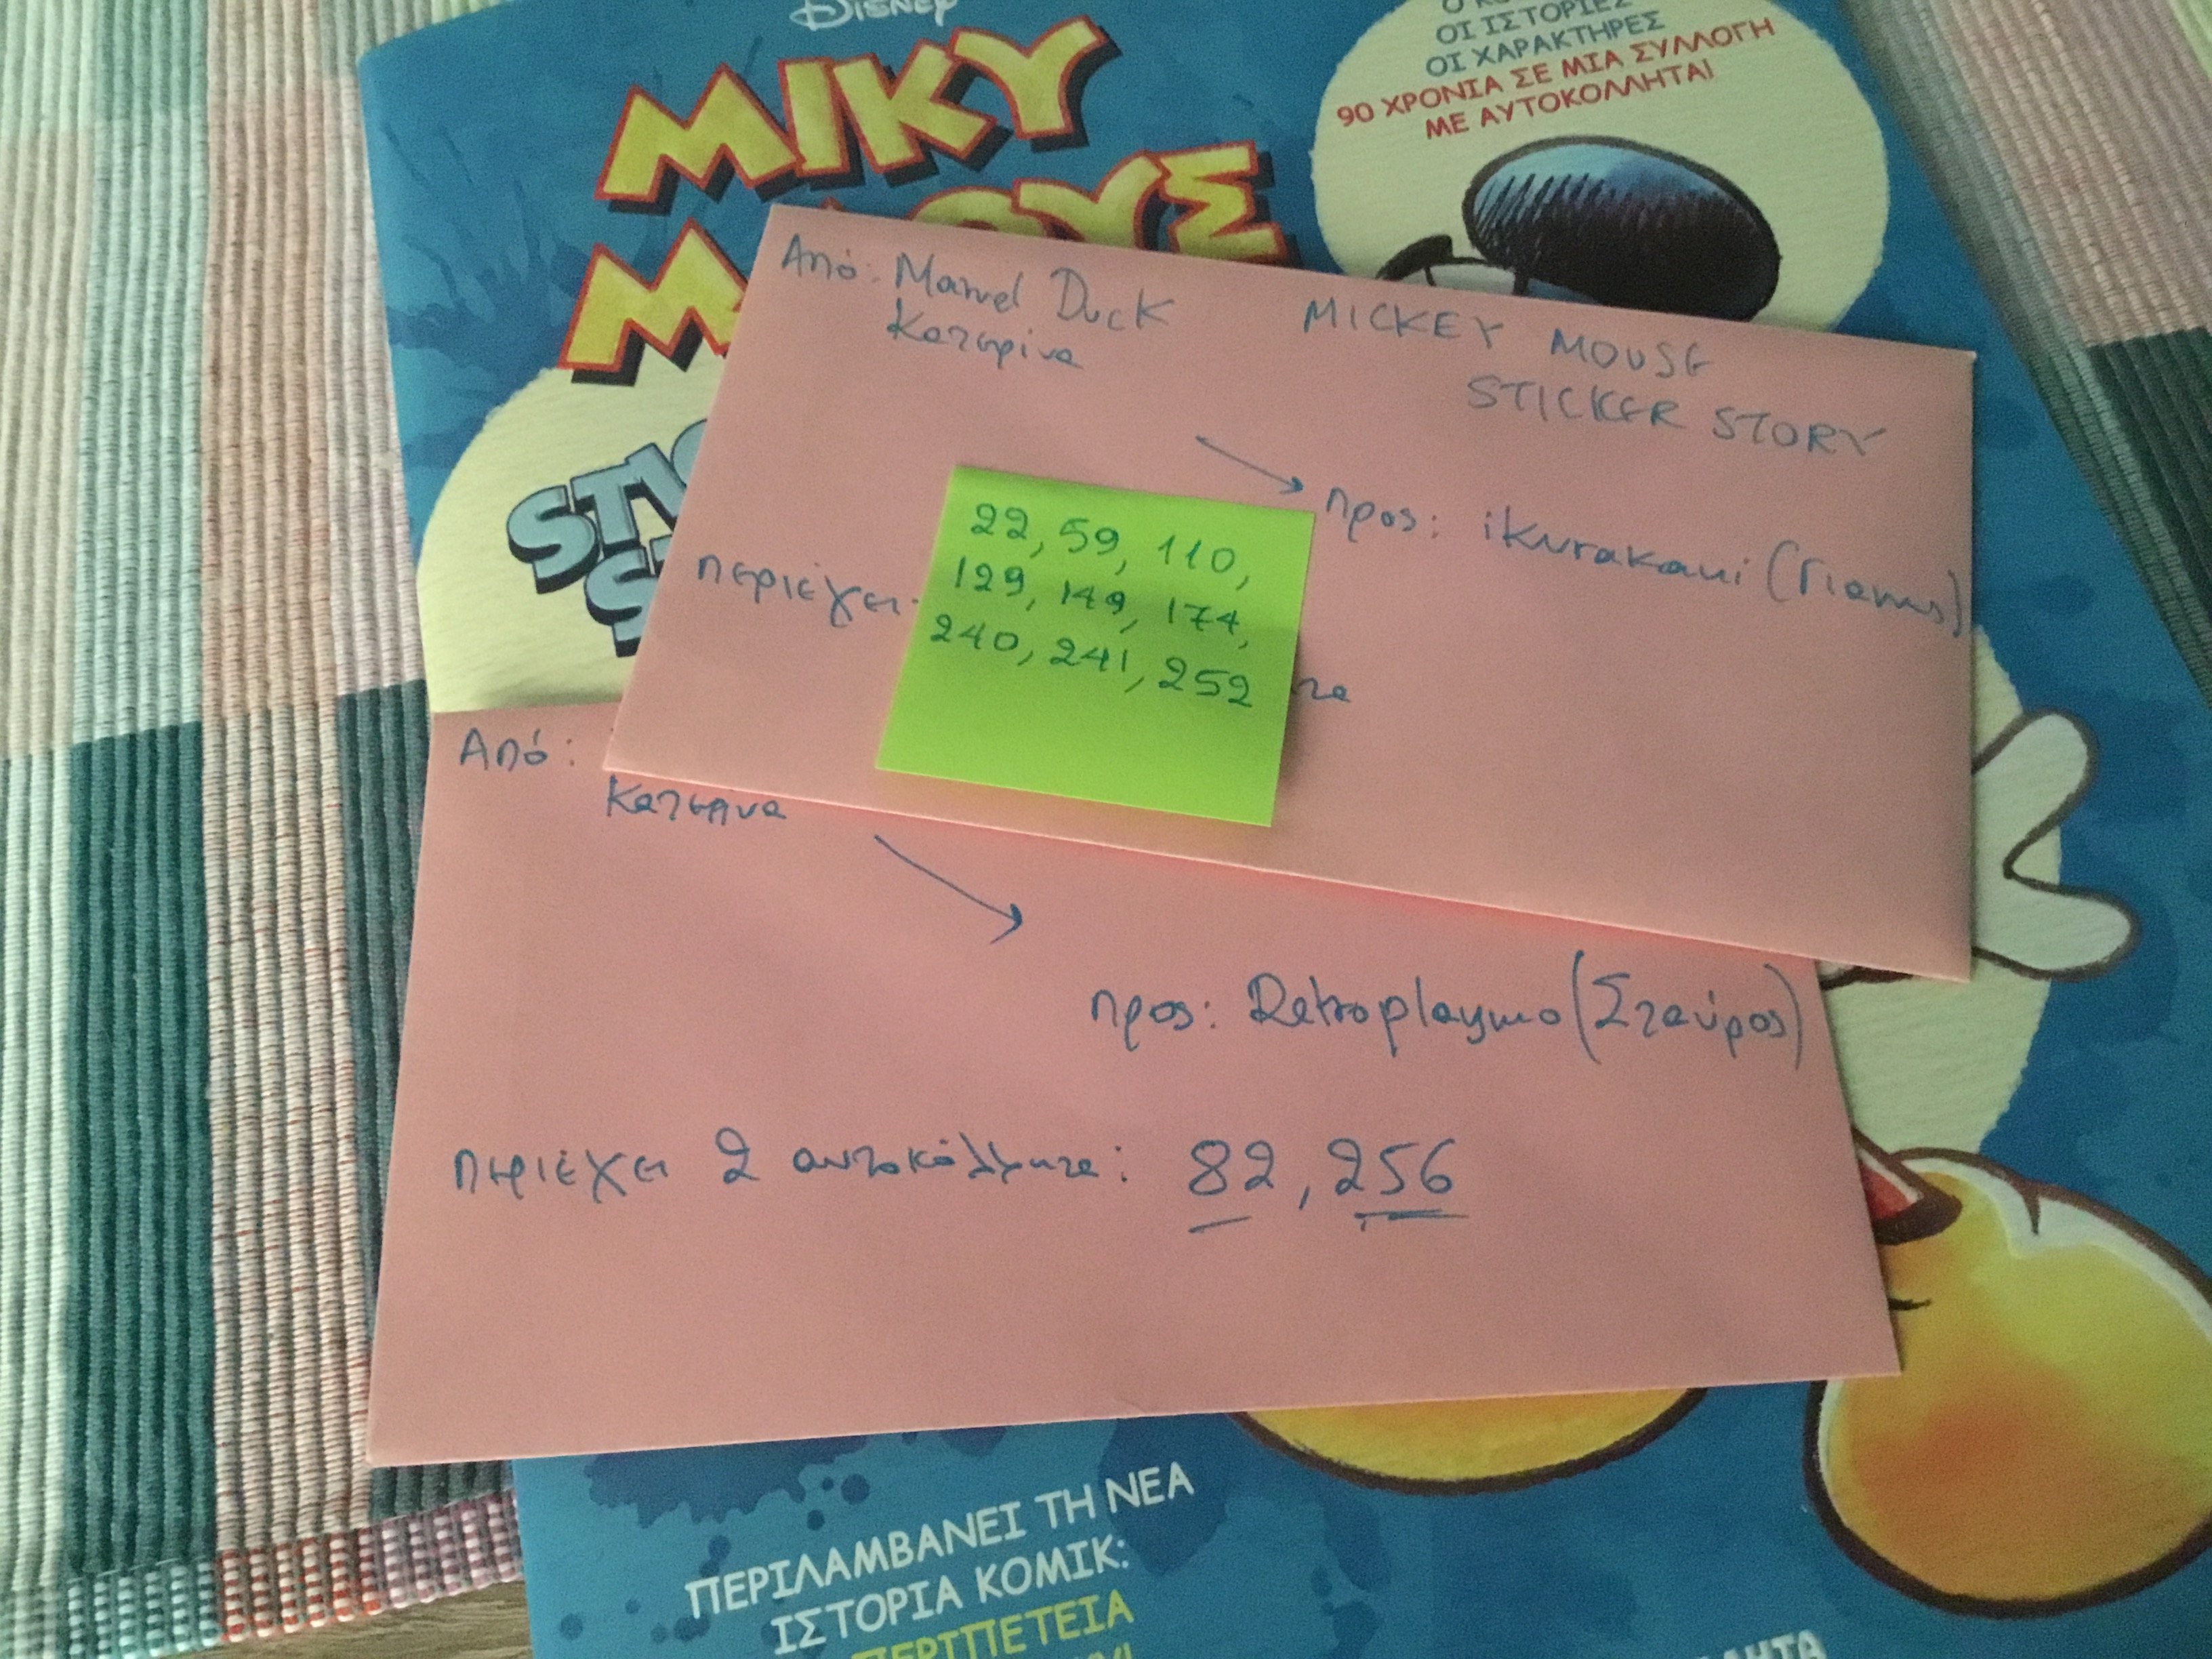 Disney
ΜΙΚΥ
ΟΙ ΙΣΤΟΡΙΕΣ
ΟΙ ΧΑΡΑΚΤΗΡΕΣ
90 ΧΡΟΝΙΑ ΣΕ ΜΙΑ ΣΥΛΛΟΓΗ
ΜΕ ΑΥΤΟΚΟΛΛΗΤΑ!
Από: Marvel Duck
Κατερίνα
MICKEY MOUSE
STICKER STORY
προς: ikurakami (Γιαννης)
περιέχει
22, 59, 110,
129, 149, 174,
240, 241, 252
Από:
Κατερίνα
προς: Retroplaymo (Σταύρος)
περιέχει 2 αυτοκόλλητα: 82, 256
ΠΕΡΙΛΑΜΒΑΝΕΙ ΤΗ ΝΕΑ
ΙΣΤΟΡΙΑ ΚΟΜΙΚ:
ΠΕΡΙΠΕΤΕΙΑ